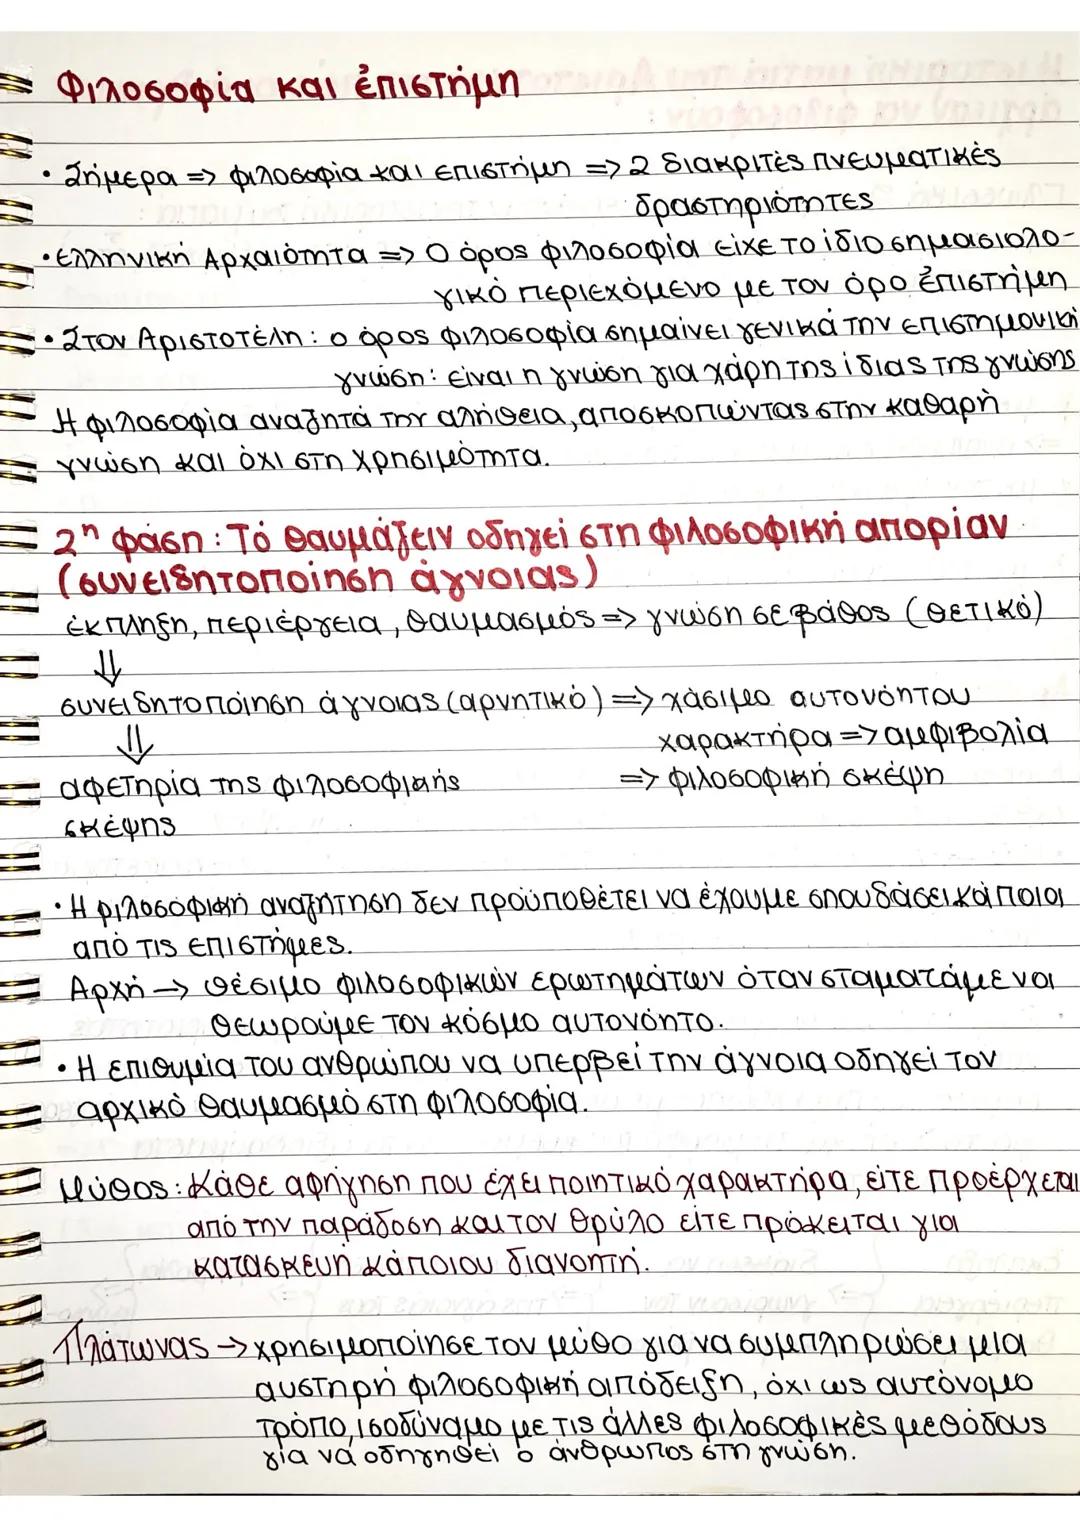 Φιλοσοφία και ἐπιστήμη
• Σήμερα => φιλοσοφία και επιστήμη => 2 διακριτές πνευματικές
δραστηριότητες
• Ελληνική Αρχαιότητα => Ο όρος φιλοσοφία είχε το ίδιο σημασιολο-
γικό περιεχόμενο με τον όρο ἐπιστήμη
• Στον Αριστοτέλη: ο όρος φιλοσοφία σημαίνει γενικά την επιστημονική
γνώση: είναι η γνώση για χάρη της ίδιας της γνώσης
Η φιλοσοφία αναζητά την αλήθεια, αποσκοπώντας στην καθαρή
γνώση και όχι στη χρησιμότητα.
2η φάση: Τό θαυμάζειν οδηγεί στη φιλοσοφική απορίαν
(συνειδητοποίηση άγνοιας)
έκπληξη, περιέργεια, θαυμασμός => γνώση σε βάθος (θετικό)
⇓
συνειδητοποίηση άγνοιας (αρνητικό) => χάσιμο αυτονόητου
⇓ χαρακτήρα => αμφιβολία
αφετηρία της φιλοσοφικής => φιλοσοφική σκέψη
σκέψης
• Η φιλοσοφική αναζήτηση δεν προϋποθέτει να έχουμε σπουδάσει κάποια
από τις επιστήμες.
Αρχή → θέσιμο φιλοσοφικών ερωτημάτων όταν σταματάμε να
θεωρούμε τον κόσμο αυτονόητο.
• Η επιθυμία του ανθρώπου να υπερβεί την άγνοια οδηγεί τον
αρχικό θαυμασμό στη φιλοσοφία.
Μύθος: Κάθε αφήγηση που έχει ποιητικό χαρακτήρα, είτε προέρχεται
από την παράδοση και τον θρύλο είτε πρόκειται για
κατασκευή κάποιου διανοητή.
Πλάτωνας → χρησιμοποίησε τον μύθο για να συμπληρώσει μια
αυστηρή φιλοσοφική απόδειξη, όχι ως αυτόνομο
τρόπο, ισοδύναμο με τις άλλες φιλοσοφικές μεθόδους
για να οδηγηθεί ο άνθρωπος στη γνώση.